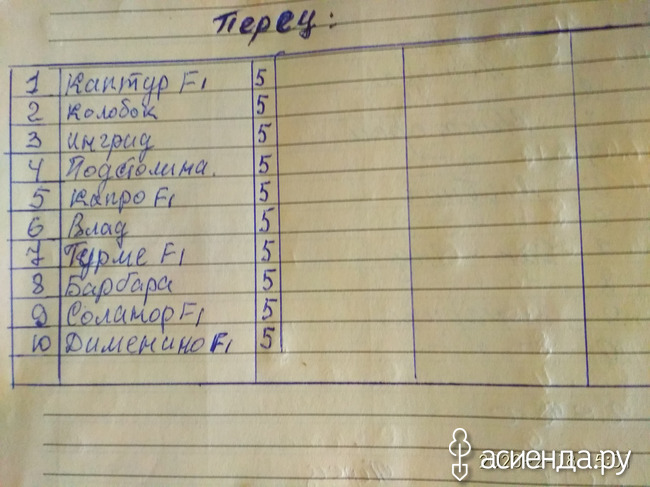 Перец:
1 Каптур F1 5
2 Колобок 5
3 Ингрид 5
4 Подстолина. 5
5 Капро F1 5
6 Влад 5
7 Турме F1 5
8 Барбара 5
9 Соланор F1 5
10 Дименино F1 5
асиенда.ру